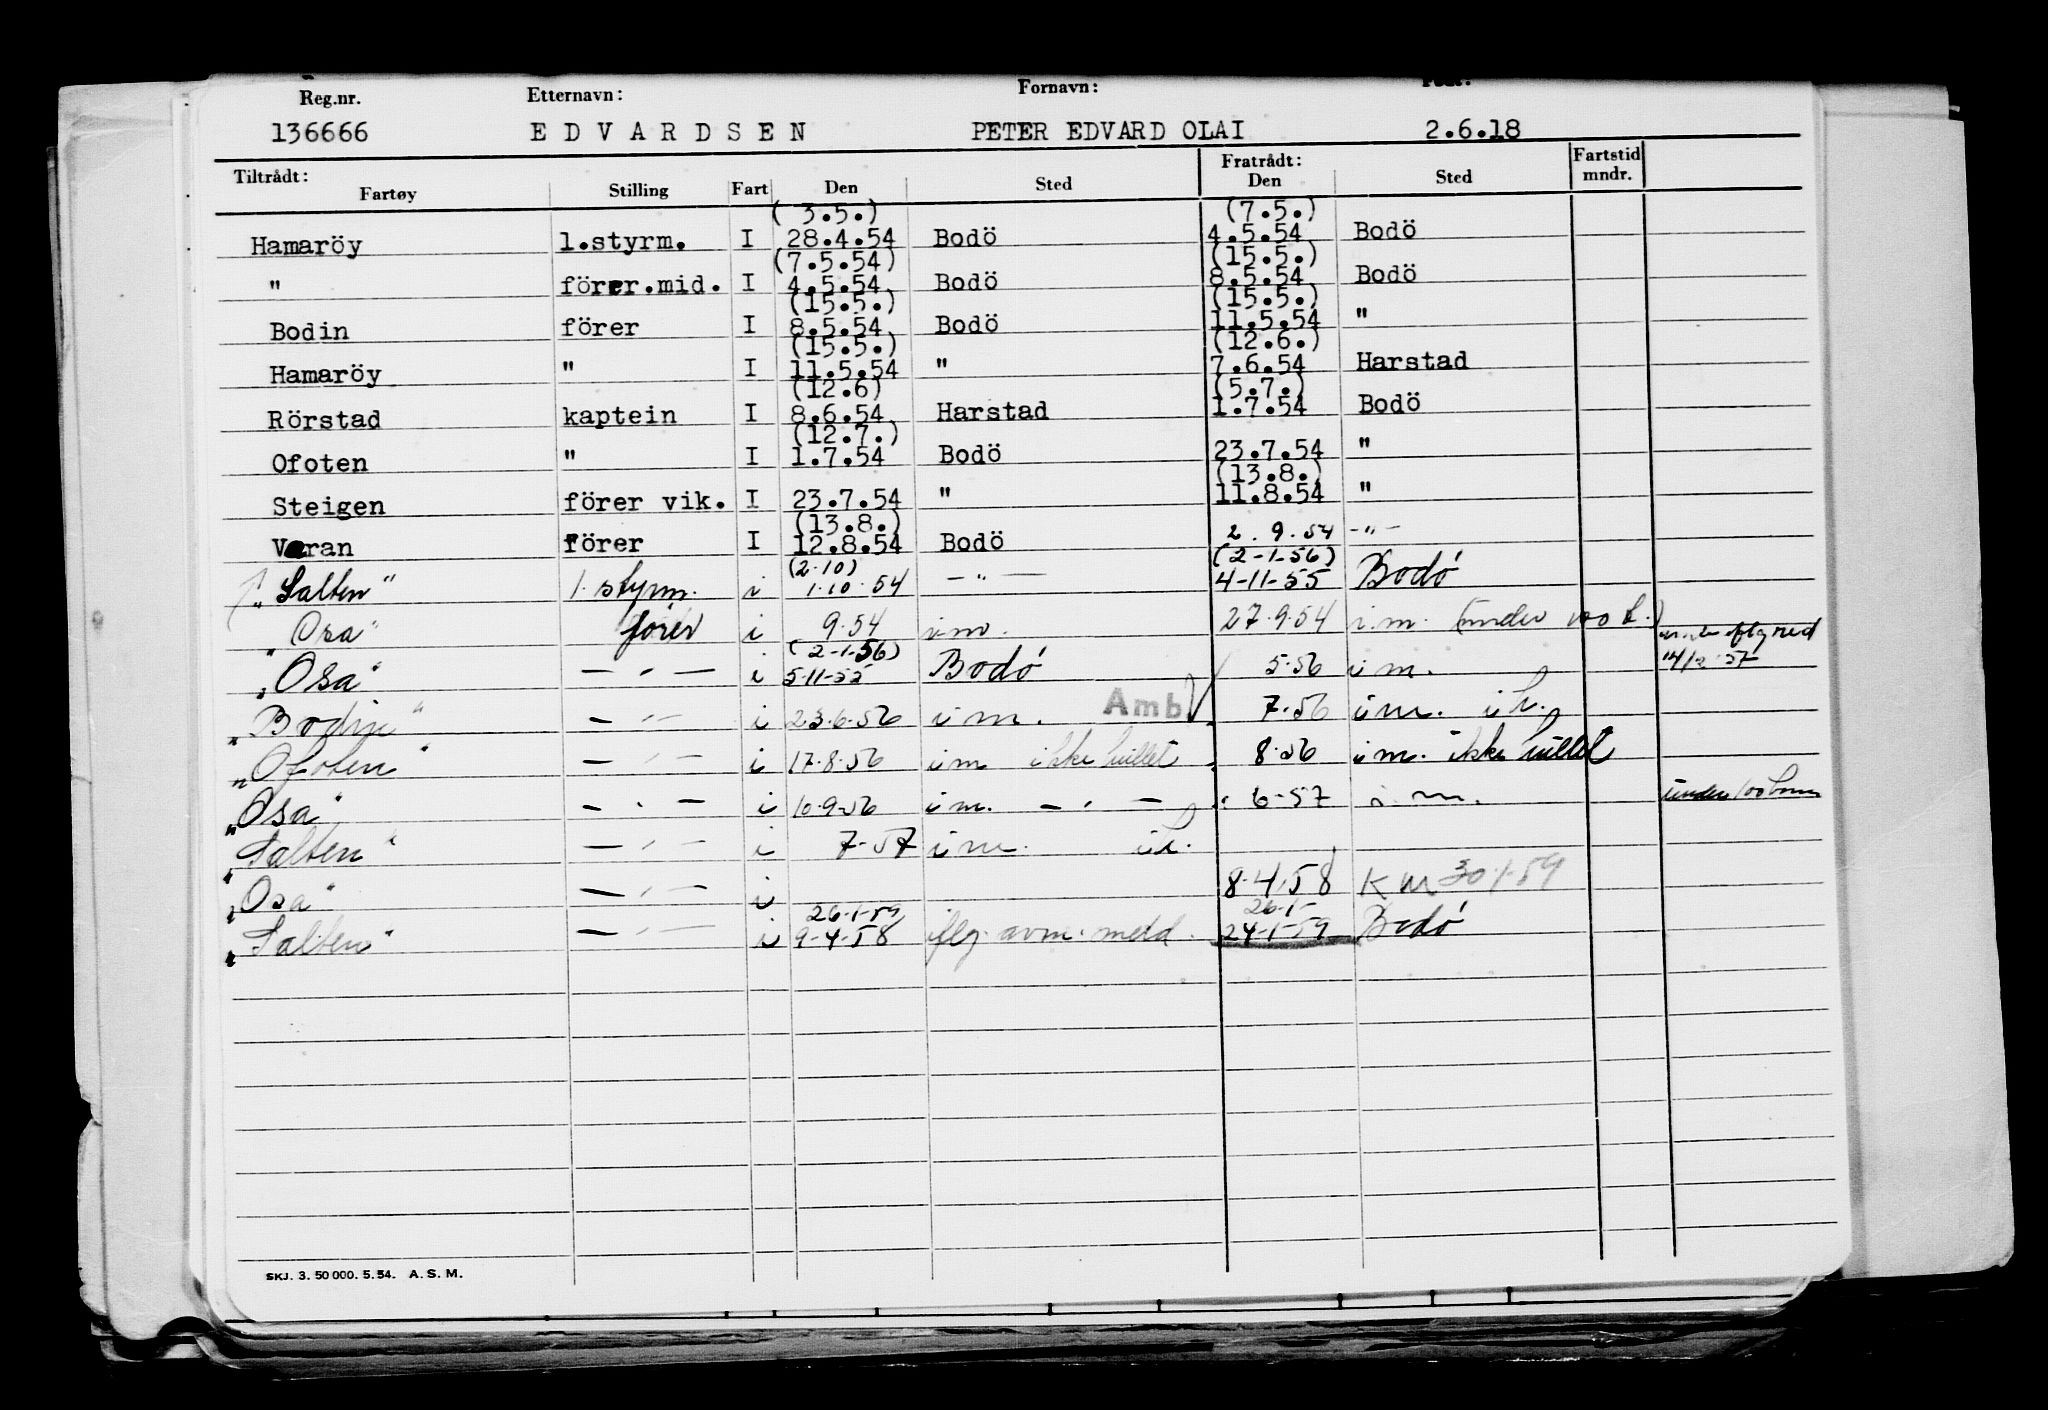 Reg.nr. Etternavn: Fornavn:
136666 EDVARDSEN PETER EDVARD OLAI 2.6.18
Tiltrådt: Fratrådt: Fartstid
Fartøy Stilling Fart Den Sted Den Sted mndr.
(3.5.) (7.5.)
Hamaröy 1.styrm. I 28.4.54 Bodö 4.5.54 Bodö
(7.5.54) (15.5.)
" förer.mid. I 4.5.54 Bodö 8.5.54 Bodö
(15.5.) (15.5.)
Bodin förer I 8.5.54 Bodö 11.5.54 "
(15.5.) (12.6.)
Hamaröy " I 11.5.54 " 7.6.54 Harstad
(12.6) (5.7.)
Rörstad kaptein I 8.6.54 Harstad 1.7.54 Bodö
(12.7.)
Ofoten " I 1.7.54 Bodö 23.7.54 "
(13.8.)
Steigen förer vik. I 23.7.54 " 11.8.54 "
(13.8.)
Varan förer I 12.8.54 Bodö 2.9.54 -"-
(2.10) (2-1-56)
"Salten" 1. styrm. i 1.10.54 -"- 4-11-55 Bodö
"Osa" förer i 9.54 i.m. 27.9.54 i.m. (under 100 b.)
(2-1-56)
"Osa" -"- i 5-11-55 Bodö 5.56 i m. 14/2 57
"Bodin" -"- i 23.6.56 i m. Amb 7.56 i m. i h.
"Ofoten" -"- i 17.8.56 i m ikke hullet 8.56 i m. ikke hullet
"Osa" -"- i 10.9.56 i m. -"- 6-57 i.m. under 100 br
"Salten" -"- i 7-57 i m. i h.
"Osa" -"- i 8.4.58 K M 30-1-59
26-1-59 26-1-
"Salten" -"- i 9-4-58 iflg. avm. meld. 24-1-59 Bodö
SKJ. 3. 50 000. 5. 54. A. S. M.